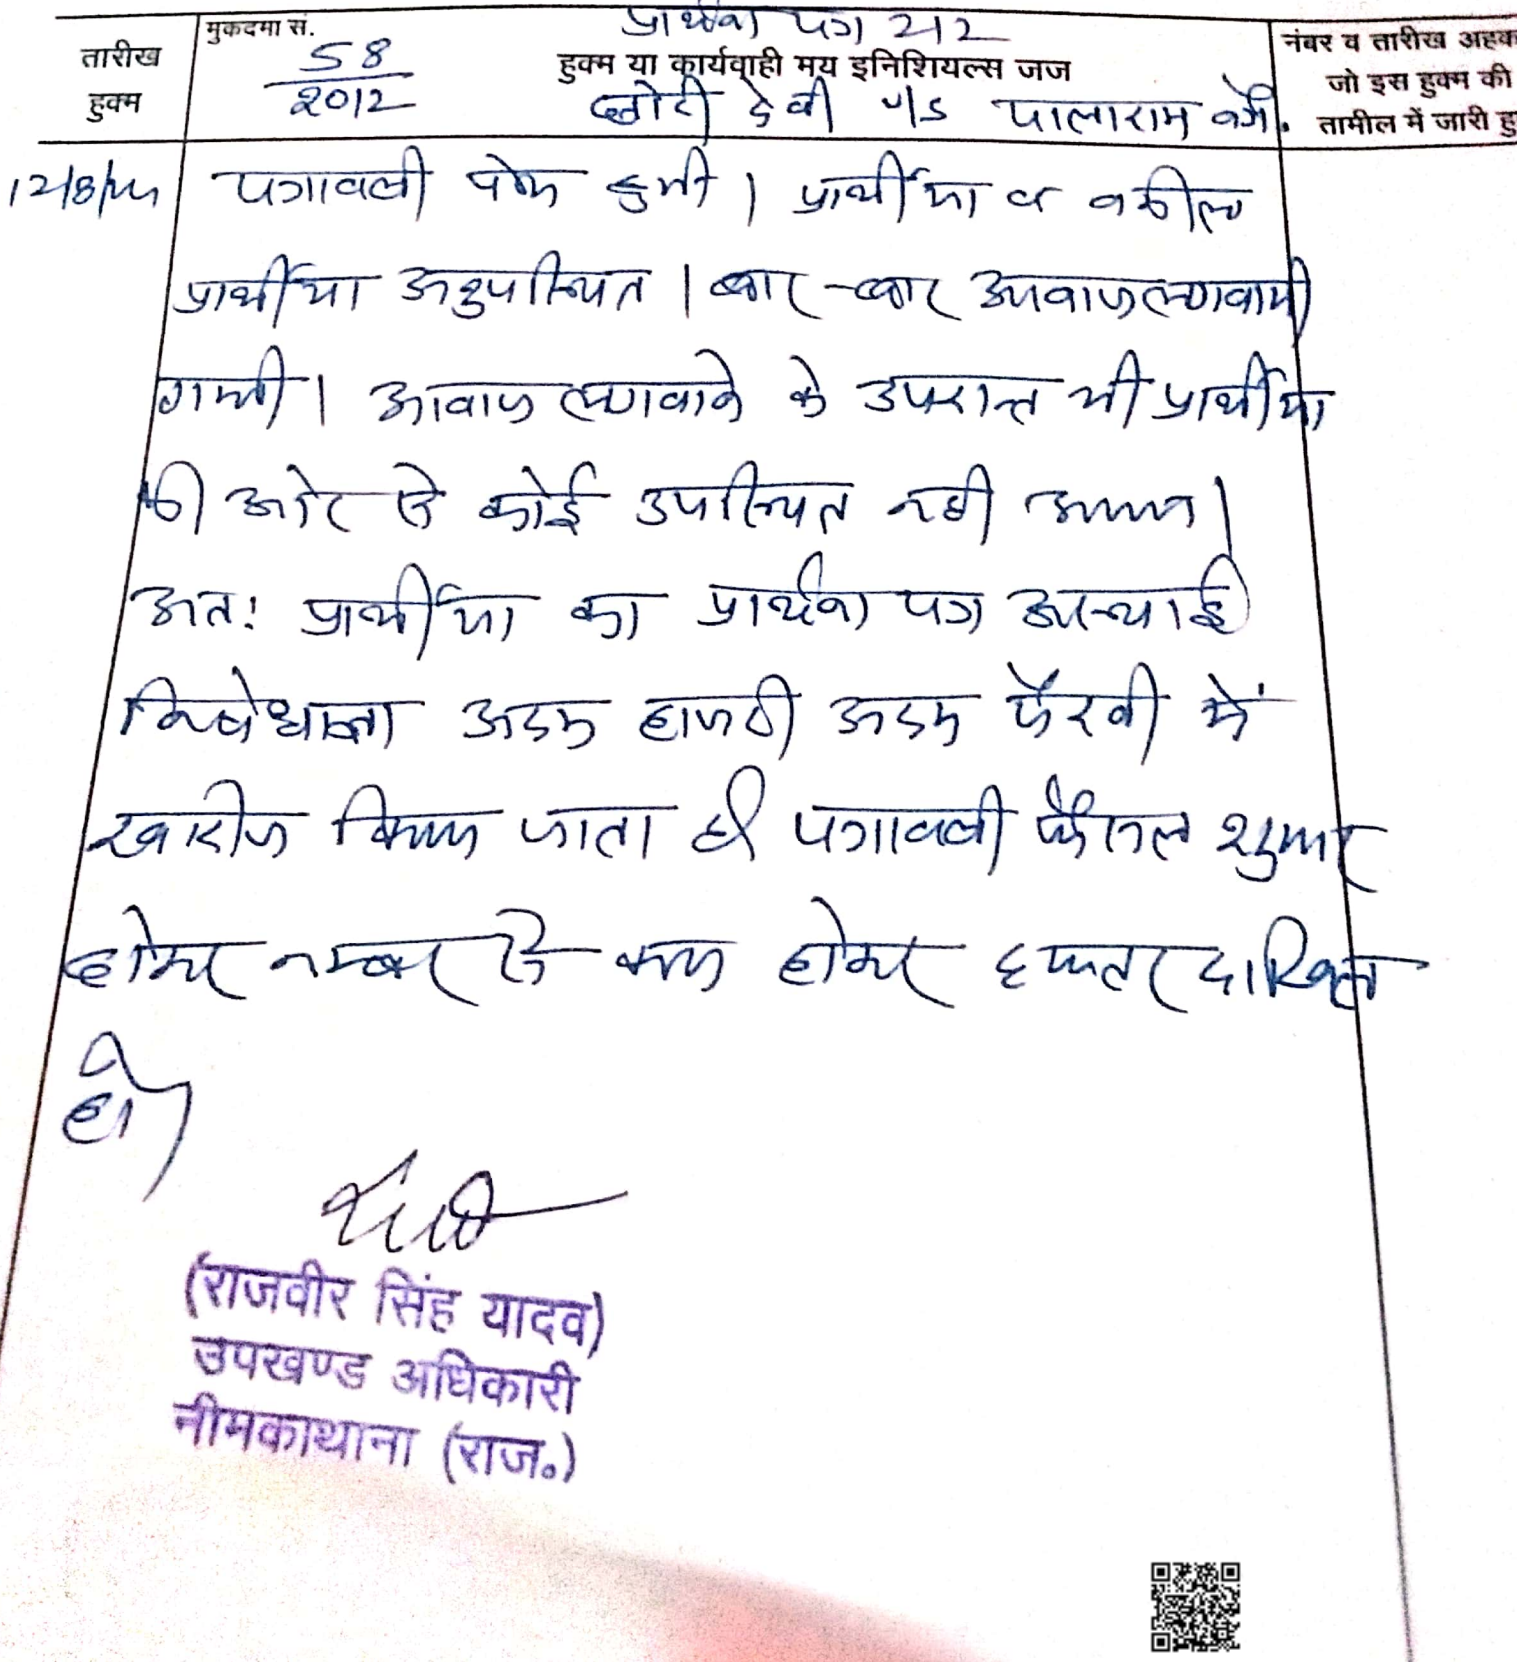 प्रार्थना पत्र 212
तारीख हुक्म
मुकदमा सं. 58/2012
हुक्म या कार्यवाही मय इनिशियल्स जज
छोटी देवी v/s पालाराम वगै.
नंबर व तारीख अहका
जो इस हुक्म की
तामील में जारी हु
12/8/
पत्रावली पेश हुयी। प्रार्थीया व वकील
प्रार्थीया अनुपस्थित। बार-बार आवाज लगवायी
गयी। आवाज लगवाने के उपरान्त भी प्रार्थीया
की ओर से कोई उपस्थित नही आया।
अतः प्रार्थीया का प्रार्थना पत्र अस्थाई
निषेधाज्ञा अदम हाजरी अदम पैरवी में
खारीज किया जाता है। पत्रावली फैसल शुमार
होकर नम्बर से कम होकर दफ्तर दाखिल
हो।
(राजवीर सिंह यादव)
उपखण्ड अधिकारी
नीमकाथाना (राज०)